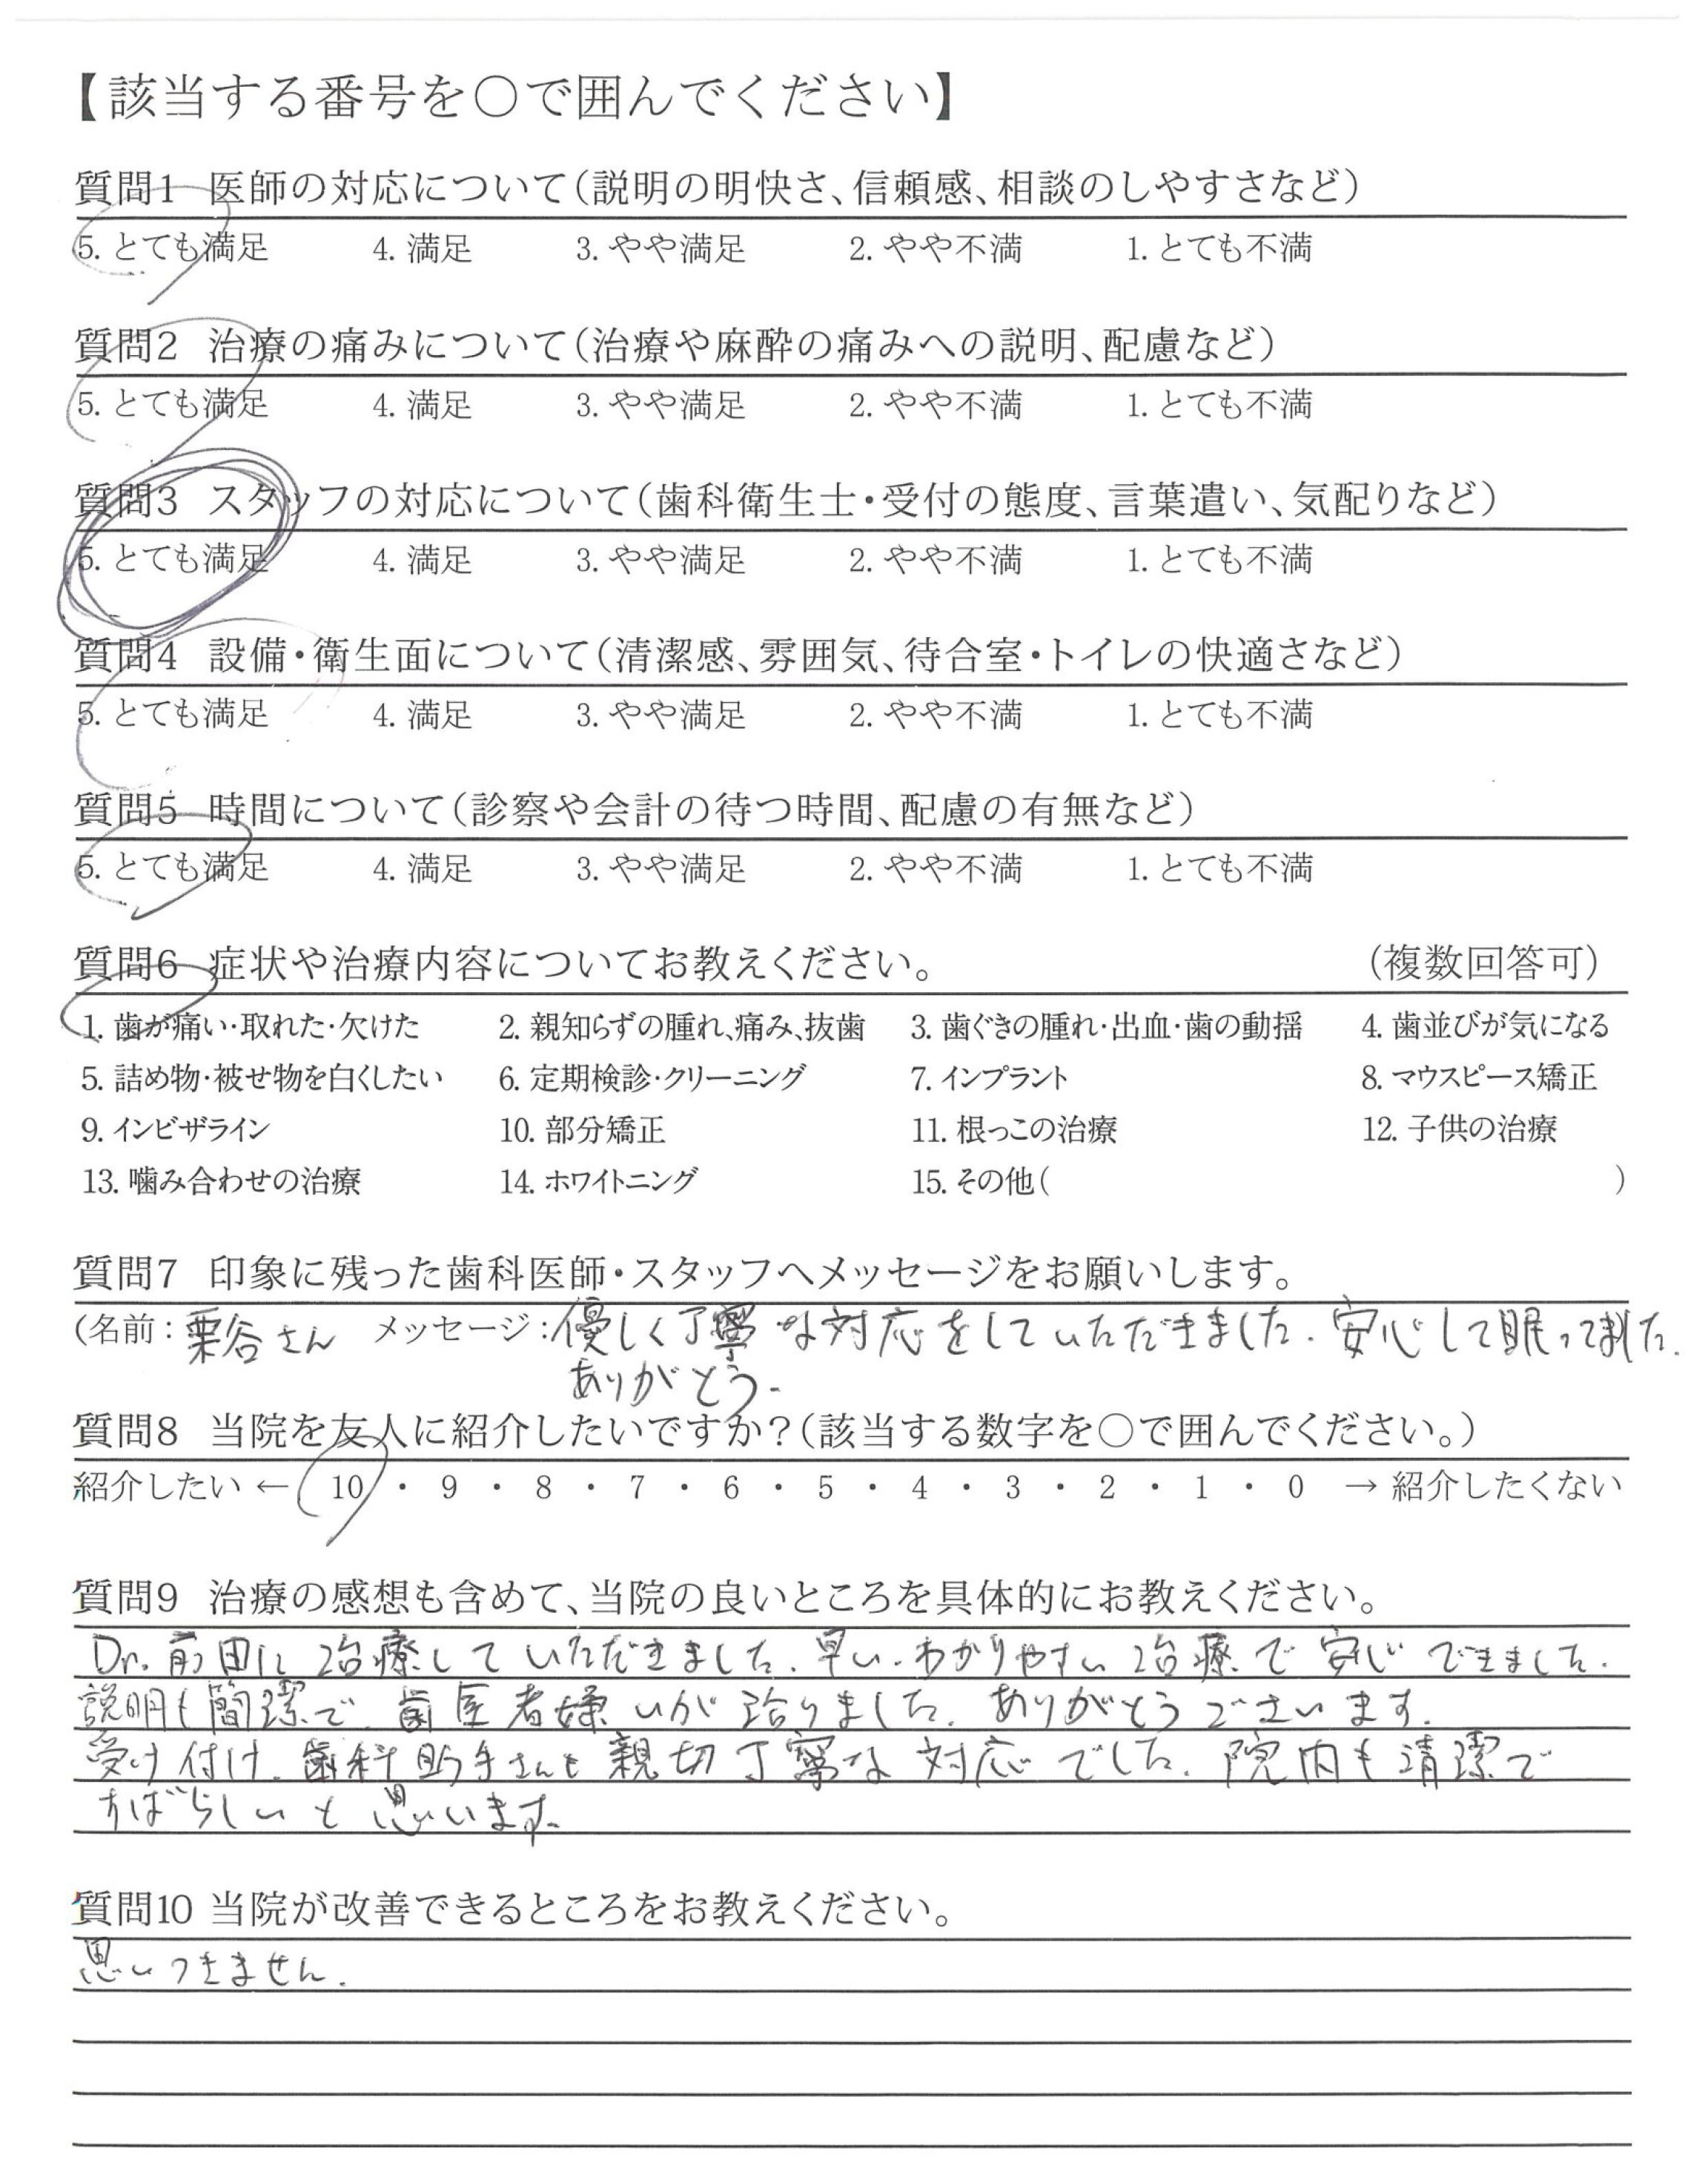 【該当する番号を〇で囲んでください】
質問1 医師の対応について（説明の明快さ、信頼感、相談のしやすさなど）
5. とても満足 4. 満足 3. やや満足 2. やや不満 1. とても不満
質問2 治療の痛みについて（治療や麻酔の痛みへの説明、配慮など）
5. とても満足 4. 満足 3. やや満足 2. やや不満 1. とても不満
質問3 スタッフの対応について（歯科衛生士・受付の態度、言葉遣い、気配りなど）
5. とても満足 4. 満足 3. やや満足 2. やや不満 1. とても不満
質問4 設備・衛生面について（清潔感、雰囲気、待合室・トイレの快適さなど）
5. とても満足 4. 満足 3. やや満足 2. やや不満 1. とても不満
質問5 時間について（診察や会計の待つ時間、配慮の有無など）
5. とても満足 4. 満足 3. やや満足 2. やや不満 1. とても不満
質問6 症状や治療内容についてお教えください。 （複数回答可）
1. 歯が痛い・取れた・欠けた 2. 親知らずの腫れ、痛み、抜歯 3. 歯ぐきの腫れ・出血・歯の動揺 4. 歯並びが気になる
5. 詰め物・被せ物を白くしたい 6. 定期検診・クリーニング 7. インプラント 8. マウスピース矯正
9. インビザライン 10. 部分矯正 11. 根っこの治療 12. 子供の治療
13. 噛み合わせの治療 14. ホワイトニング 15. その他（ ）
質問7 印象に残った歯科医師・スタッフへメッセージをお願いします。
（名前：栗谷さん メッセージ：優しく丁寧な対応をしていただきました。安心して眠ってました。
ありがとう。
質問8 当院を友人に紹介したいですか？（該当する数字を〇で囲んでください。）
紹介したい ← 10 ・ 9 ・ 8 ・ 7 ・ 6 ・ 5 ・ 4 ・ 3 ・ 2 ・ 1 ・ 0 → 紹介したくない
質問9 治療の感想も含めて、当院の良いところを具体的にお教えください。
Dr.前田に治療していただきました。早い、わかりやすい治療で安心できました。
説明も簡潔で、歯医者嫌いが治りました。ありがとうございます。
受け付け、歯科助手さんも親切丁寧な対応でした。院内も清潔で
すばらしいと思います。
質問10 当院が改善できるところをお教えください。
思いつきません。